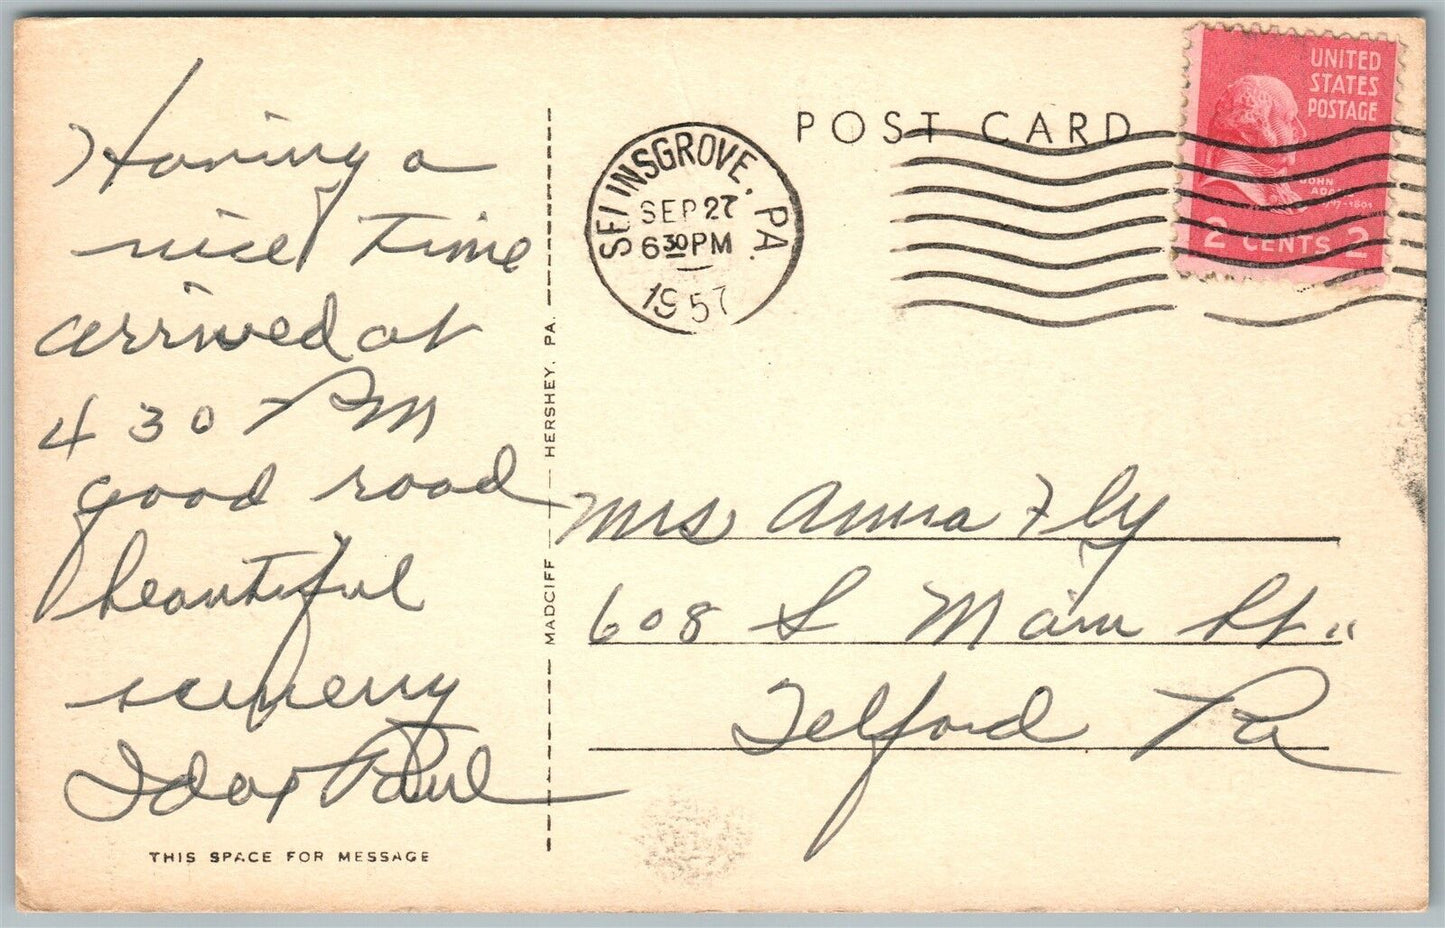 Having a
nice time
arrived at
4 30 PM
good road
beautiful
scenery
Ida & Paul
THIS SPACE FOR MESSAGE
MADCIFF — HERSHEY, PA.
POST CARD
SELINSGROVE, PA.
SEP 27
6 30 PM
1957
UNITED
STATES
POSTAGE
JOHN
ADAMS
1797-1801
2 CENTS 2
Mrs Anna Fly
608 S Main St.
Telford Pa